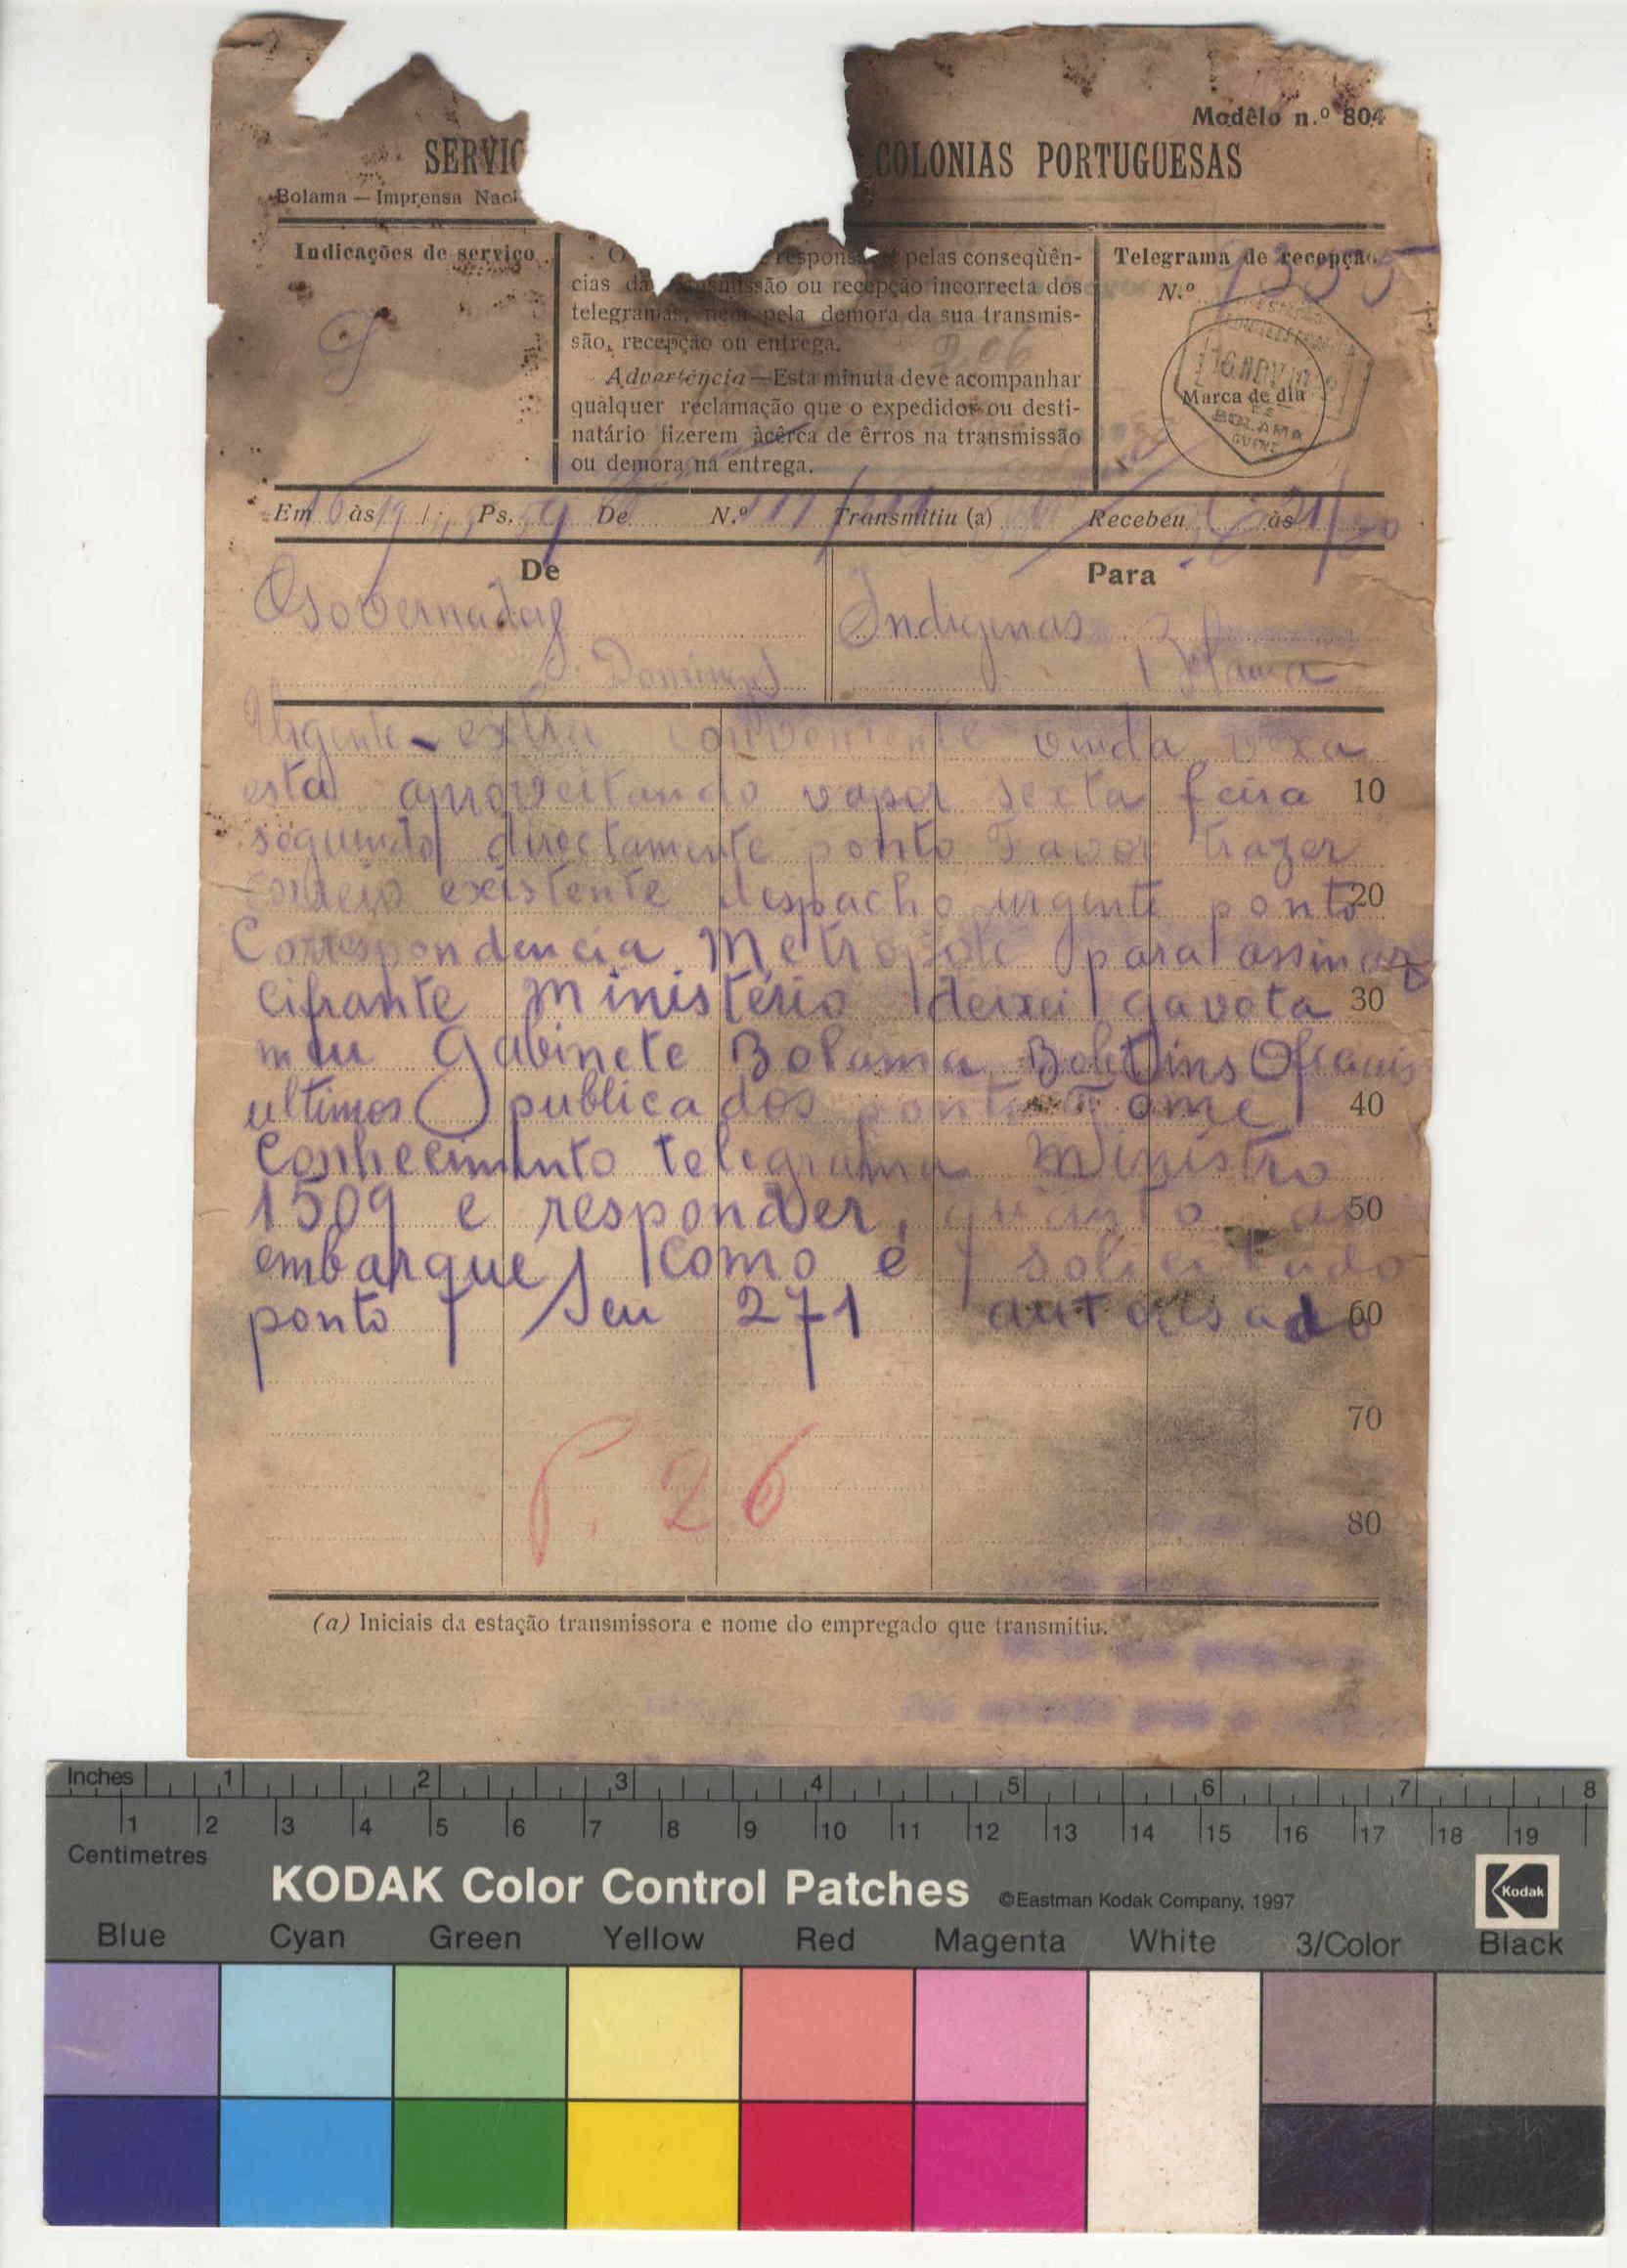 Modêlo n.º 804
SERVIÇ COLONIAS PORTUGUESAS
Bolama — Imprensa Naci
Indicações de serviço
g
O responsá pelas conseqùên-
cias da transmissão ou recepção incorrecta dos
telegramas, nem pela demora da sua transmis-
são, recepção ou entrega.
206
Advertência — Esta minuta deve acompanhar
qualquer reclamação que o expedidor ou desti-
natário fizerem àcêrca de êrros na transmissão
ou demora na entrega.
Telegrama de recepção
N.º 9355
16 NOV
Marca de dia
BOLAMA
GUINÉ
Em 16 às 19 Ps. 59 De N.º 117/211 Transmitiu (a) Recebeu às 21/30
De
Governador
Domingos
Para
Indigenas
Bolama
Urgente - extra conveniente vinda vexa
esta aproveitando vapor secta feira 10
seguindo directamente ponto Favor trazer
correio existente despacho urgente ponto 20
Correspondencia Metropole para assinar
cifrante Ministério deixei gaveta 30
meu Gabinete Bolama Boletins Oficiais
ultimos publicados ponto Tome 40
Conhecimento telegrama Ministro
1509 e responder, quanto ao 50
embarque, como é solicitado
ponto Seu 271 autorisado 60
70
P. 26
80
(a) Iniciais da estação transmissora e nome do empregado que transmitiu.
Inches 1 2 3 4 5 6 7 8
1 2 3 4 5 6 7 8 9 10 11 12 13 14 15 16 17 18 19
Centimetres
KODAK Color Control Patches ©Eastman Kodak Company, 1997 Kodak
Blue Cyan Green Yellow Red Magenta White 3/Color Black